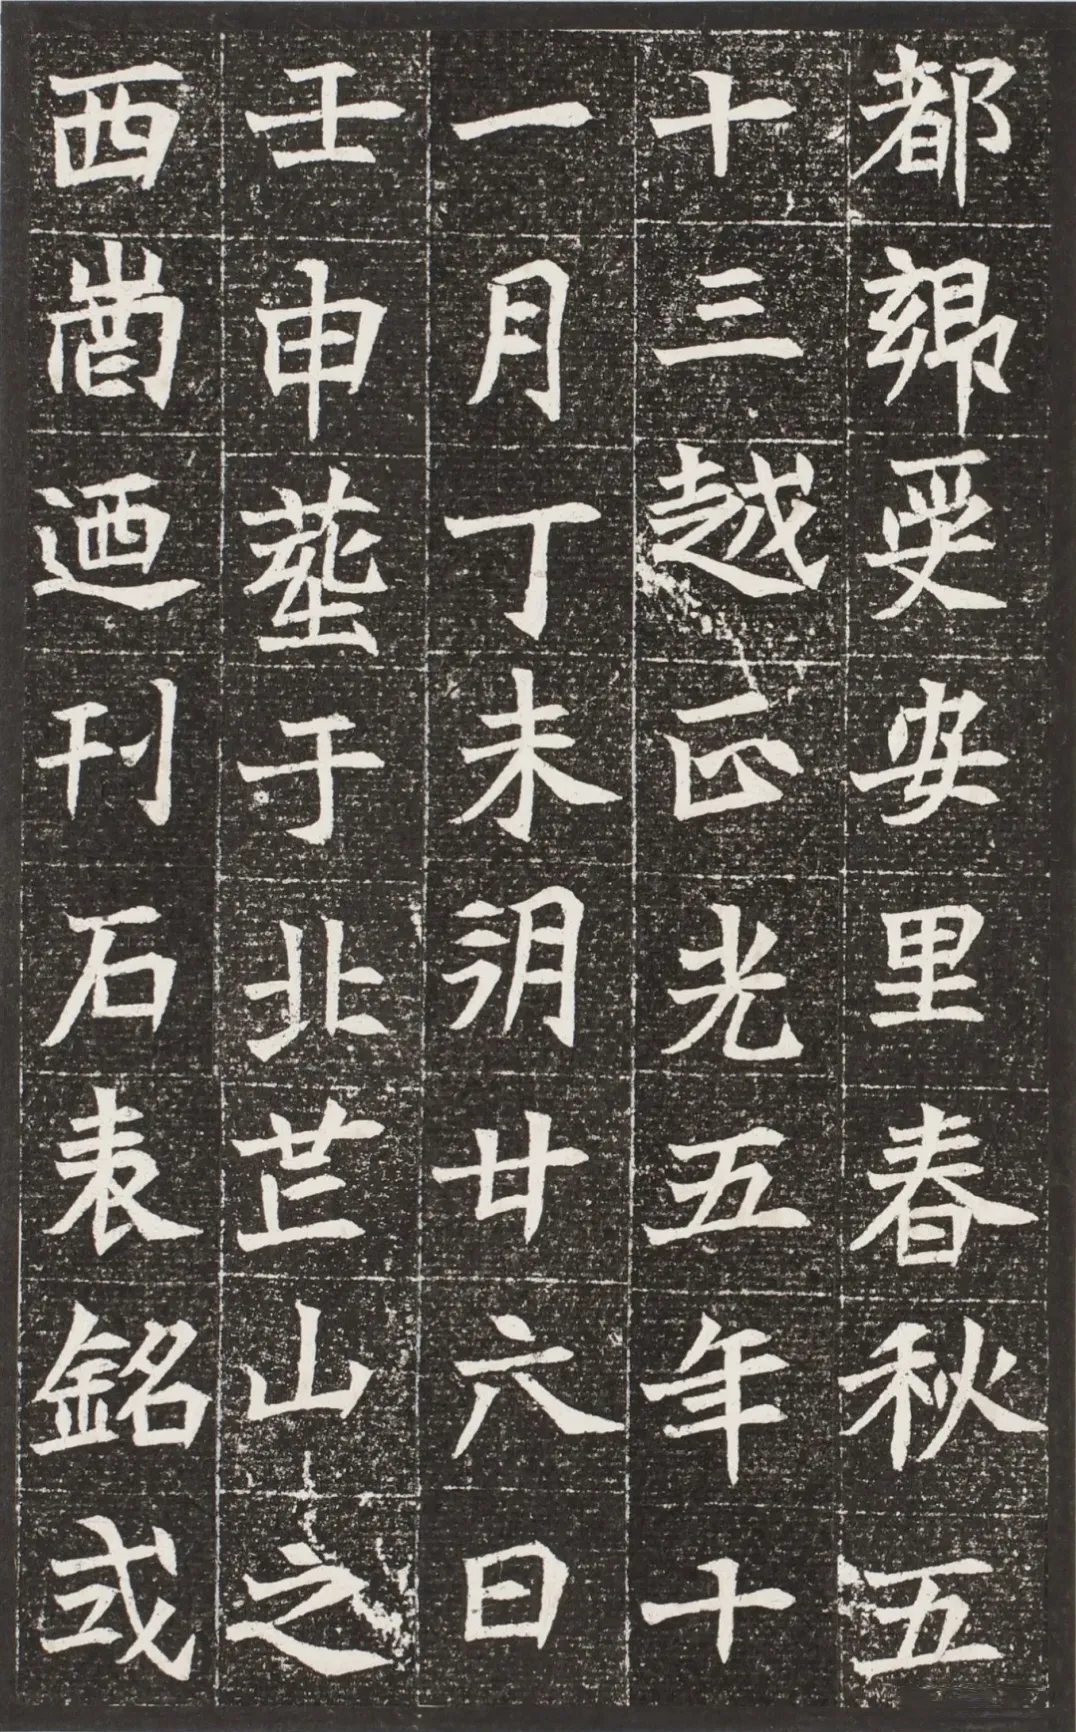 都鄉受安里春秋五
十三越正光五年十
一月丁未朔廿六日
壬申葬于北芒山之
西崗迺刊石表銘或